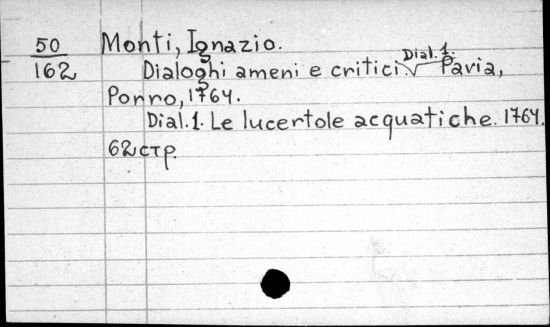 50
162
Monti, Ignazio.
Dialoghi ameni e critici. Dial. 1. Pavia,
Porro, 1764.
Dial. 1. Le lucertole acquatiche. 1764.
62 стр.